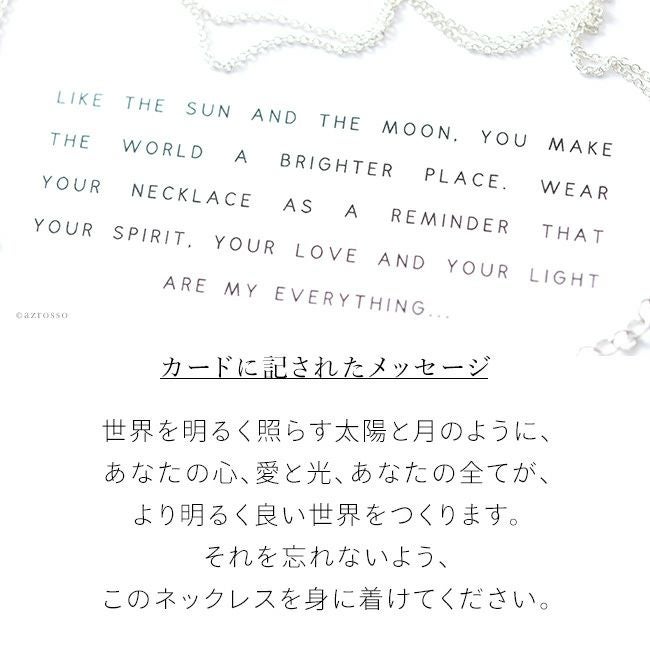 LIKE THE SUN AND THE MOON, YOU MAKE
THE WORLD A BRIGHTER PLACE. WEAR
YOUR NECKLACE AS A REMINDER THAT
YOUR SPIRIT, YOUR LOVE AND YOUR LIGHT
ARE MY EVERYTHING...
©azrosso
カードに記されたメッセージ
世界を明るく照らす太陽と月のように、
あなたの心、愛と光、あなたの全てが、
より明るく良い世界をつくります。
それを忘れないよう、
このネックレスを身に着けてください。